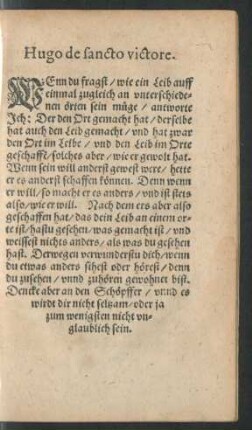 Hugo de sancto victore.
WEnn du fragst / wie ein Leib auff
einmal zugleich an vnterschiede-
nen örten sein müge / antworte
Ich: Der den Ort gemacht hat / derselbe
hat auch den Leib gemacht / vnd hat zwar
den Ort im Leibe / vnd den Leib im Orte
geschafft / solchs aber / wie er gewolt hat.
Wenn sein will anderst gewest were / hette
er es anderst schaffen können. Denn wenn
er will / so macht er es anders / vnd ist stets
also / wie er will. Nach dem ers aber also
geschaffen hat / das dein Leib an einem or-
te ist / hastu gesehen / was gemacht ist / vnd
weissest nichts anders / als was du gesehen
hast. Derwegen verwunderstu dich / wenn
du etwas anders sihest oder hörest / denn
du zusehen / vnnd zuhören gewohnet bist.
Dencke aber an den Schöpffer / vnnd es
wirdt dir nicht seltzam / oder ja
zum wenigsten nicht vn-
glaublich sein.